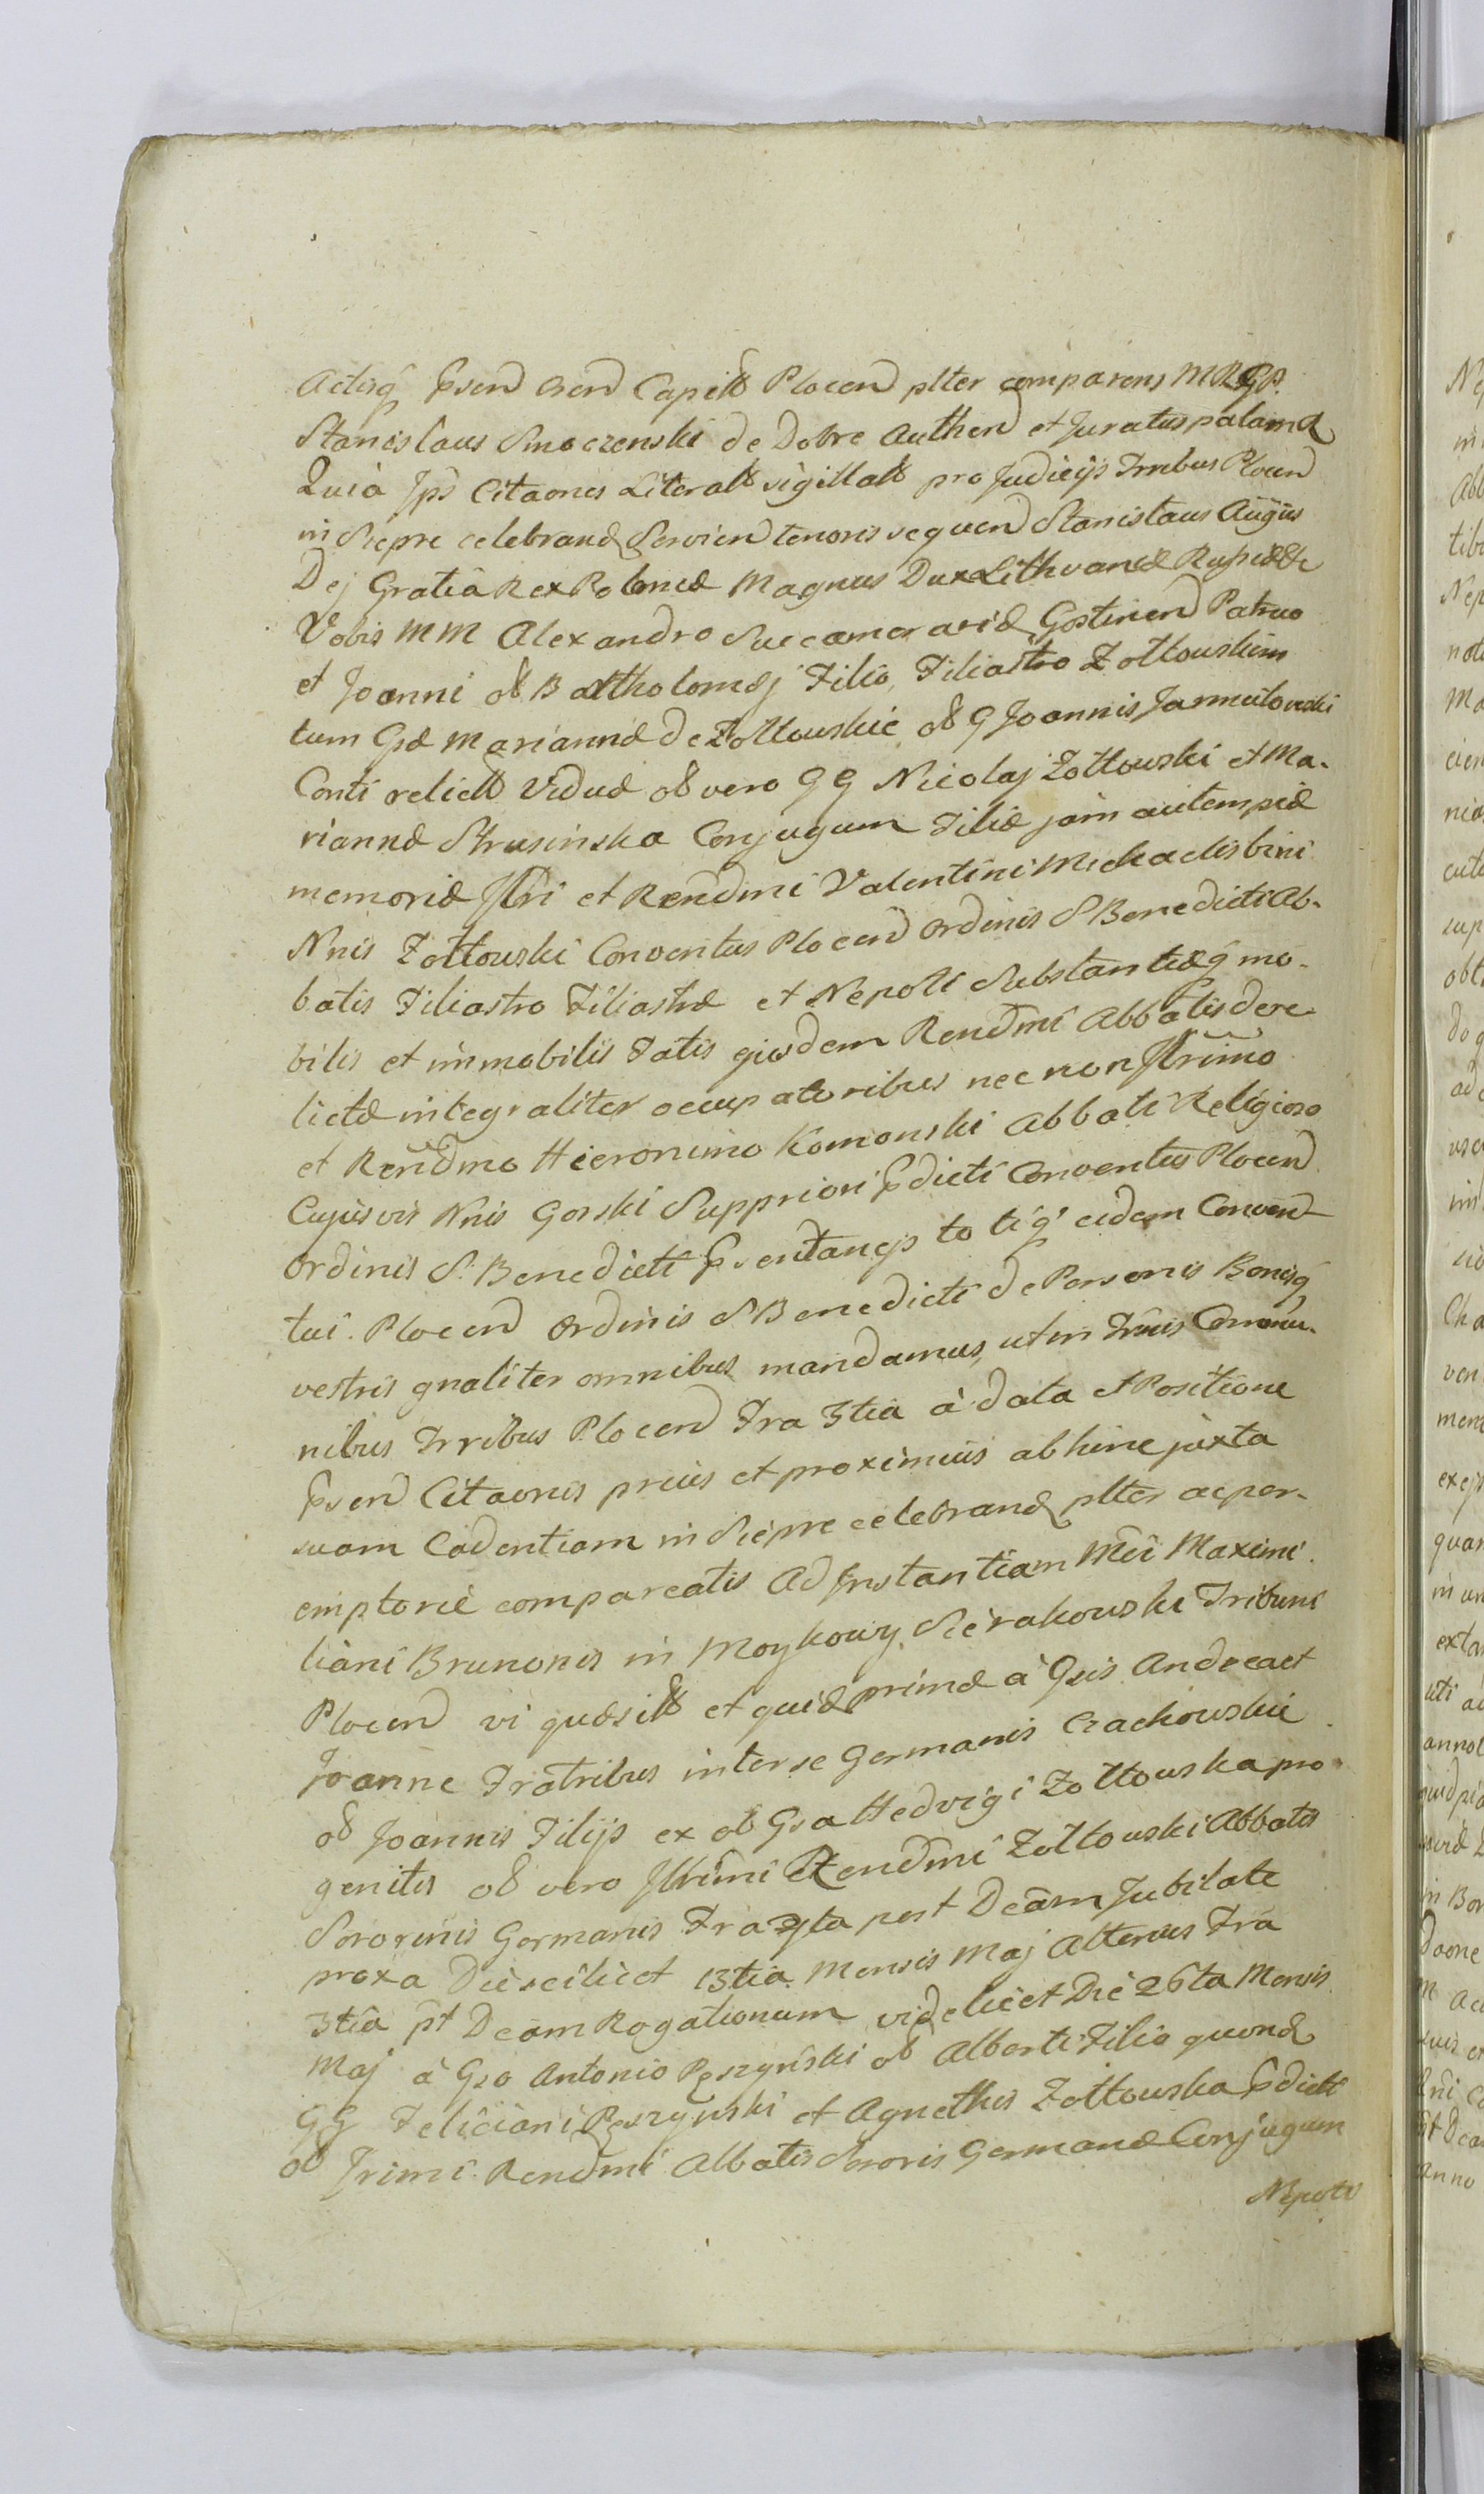 Actisq̃ Psend Crend Capitt Plocend plter comparens MRGP.
Stanislaus Smoczenski de Dobre Authend et Juratus palam
Quià Jps Citaones Literatt sigillatt pro Judicijs Trribus Plocend
in Siepre celebrand Serviend tenoris sequend Stanislaus Augus
Dej Gratiâ Rex Poloniæ Magnus Dux Lithvaniæ Russiæ &
Vobis MM Alexandro Succamerariđ Gostinend Patruo
et Joanni olt Bartholomæj Filio, Filiastro Zołtowskim
tum Gsæ Mariannæ de Zołtowskie olt G Joannis Jarmułowski
Conti relictt Viduæ olt vero GG Nicolaj Zołtowski et Ma-
riannæ Strusinska Conjugum Filiæ jam autem piæ
memoriæ Jllri et Rendmi Valentini Michaelis bini
Nnis Zołtowski Conventus Plocend Ordinis S Benedicti Ab-
batis Filiastro Filiastræ et Nepoti Substantiæq̃ mo-
bilis et immobilis Fatis ejusdem Rendmi Abbatis dere-
lictæ integraliter occupatoribus nec non Jllrimo
et Rendmo Hieronimo Komonski Abbati Religioso
Cujusvis Nnis Gorski Suppriori Pdicti Conventus Plocend
Ordinis S. Benedicti Psentaneis totiq̃ eidem Conven-
tui Plocend Ordinis S Benedicti de Personis Bonisq̃
vestris gnaliter omnibus mandamus, ut in Trmis Commu-
nibus Trribus Plocend Fra 3tia à data et Positione
Psend Citaonis prius et proximius abhinc juxta
suam Cadentiam in Siepre celebrand plter ac per-
emptoriè compareatis Ad Jnstantiam Mci Maximi
liani Brunonis in Moykowy Sierakowski Tribuni
Plocend vi quæsitt et quid primæ à Gsis Andrea et
Joanne Fratribus inter se Germanis Czachowskie
olt Joannis Filijs ex olt Gsa Hedvigi Zołtowska pro
genitis olt vero Jllrimi et Rendmi Zołtowski Abbatis
Sororinis Germanis Fra 5ta post Dcâm Jubilate
proxa Die scilicet 13tia Mensis Maj Alterius Fra
3tiâ pt Dcam Rogationum videlicet Die 26ta Mensis
Maj à Gso Antonio Pęszyński olt Alberti Filio quond
GG Feliciani Pęszynski et Agnethis Zołtowska Pdictt
olt Jrimi Rendmi Abbatis Sororis Germanæ Conjugum
Nepotis